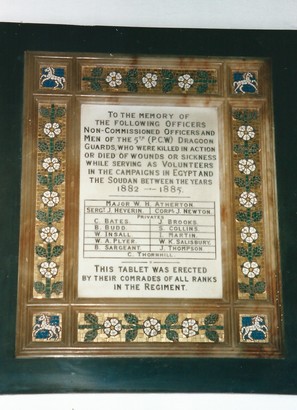 TO THE MEMORY OF
THE FOLLOWING OFFICERS
NON-COMMISSIONED OFFICERS AND
MEN OF THE 5TH (P.C.W.) DRAGOON
GUARDS, WHO WERE KILLED IN ACTION
OR DIED OF WOUNDS OR SICKNESS
WHILE SERVING AS VOLUNTEERS
IN THE CAMPAIGNS IN EGYPT AND
THE SOUDAN BETWEEN THE YEARS
1882 — 1885.
MAJOR W. H. ATHERTON.
SERGT J. HEVERIN. CORPL J. NEWTON.
PRIVATES
C. BATES. J. BROOKS.
B. RUDD. S. COLLINS.
W. INSALL. J. MARTIN.
W. A. PLYER. W. K. SALISBURY.
B. SARGEANT. J. THOMPSON.
C. THORNHILL.
THIS TABLET WAS ERECTED
BY THEIR COMRADES OF ALL RANKS
IN THE REGIMENT.